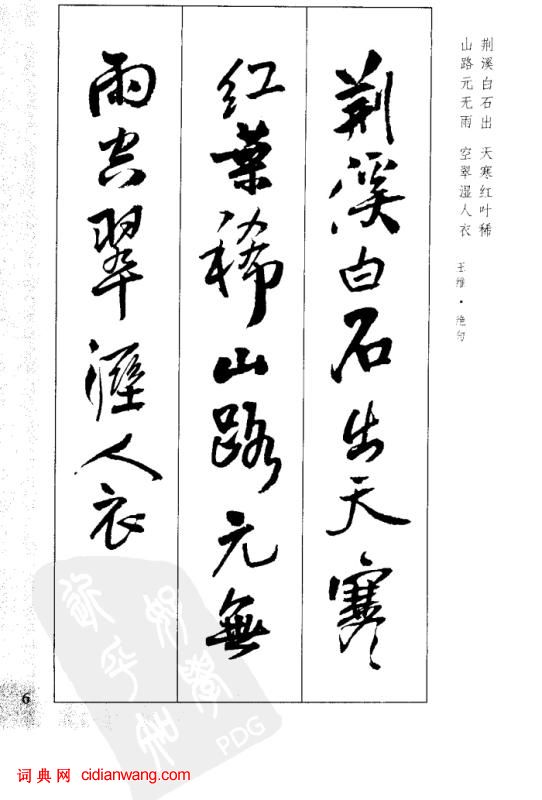 荆溪白石出　天寒红叶稀
山路元无雨　空翠湿人衣
王维・绝句
荆溪白石出天寒
红葉稀山路元無
雨空翠溼人衣
6
PDG
词典网 cidianwang.com